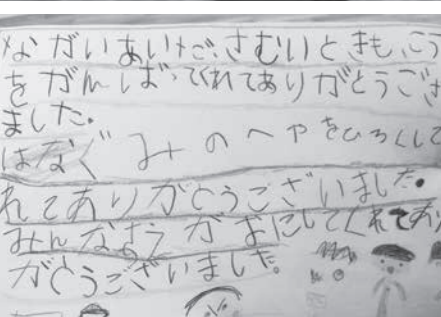 ながいあいだ、さむいときも、こう
をがんばってくれてありがとうござ
ました。
はなぐみのへやをひろくして
れてありがとうございました。
みんなきえがおにしてくれてあり
がとうございました。